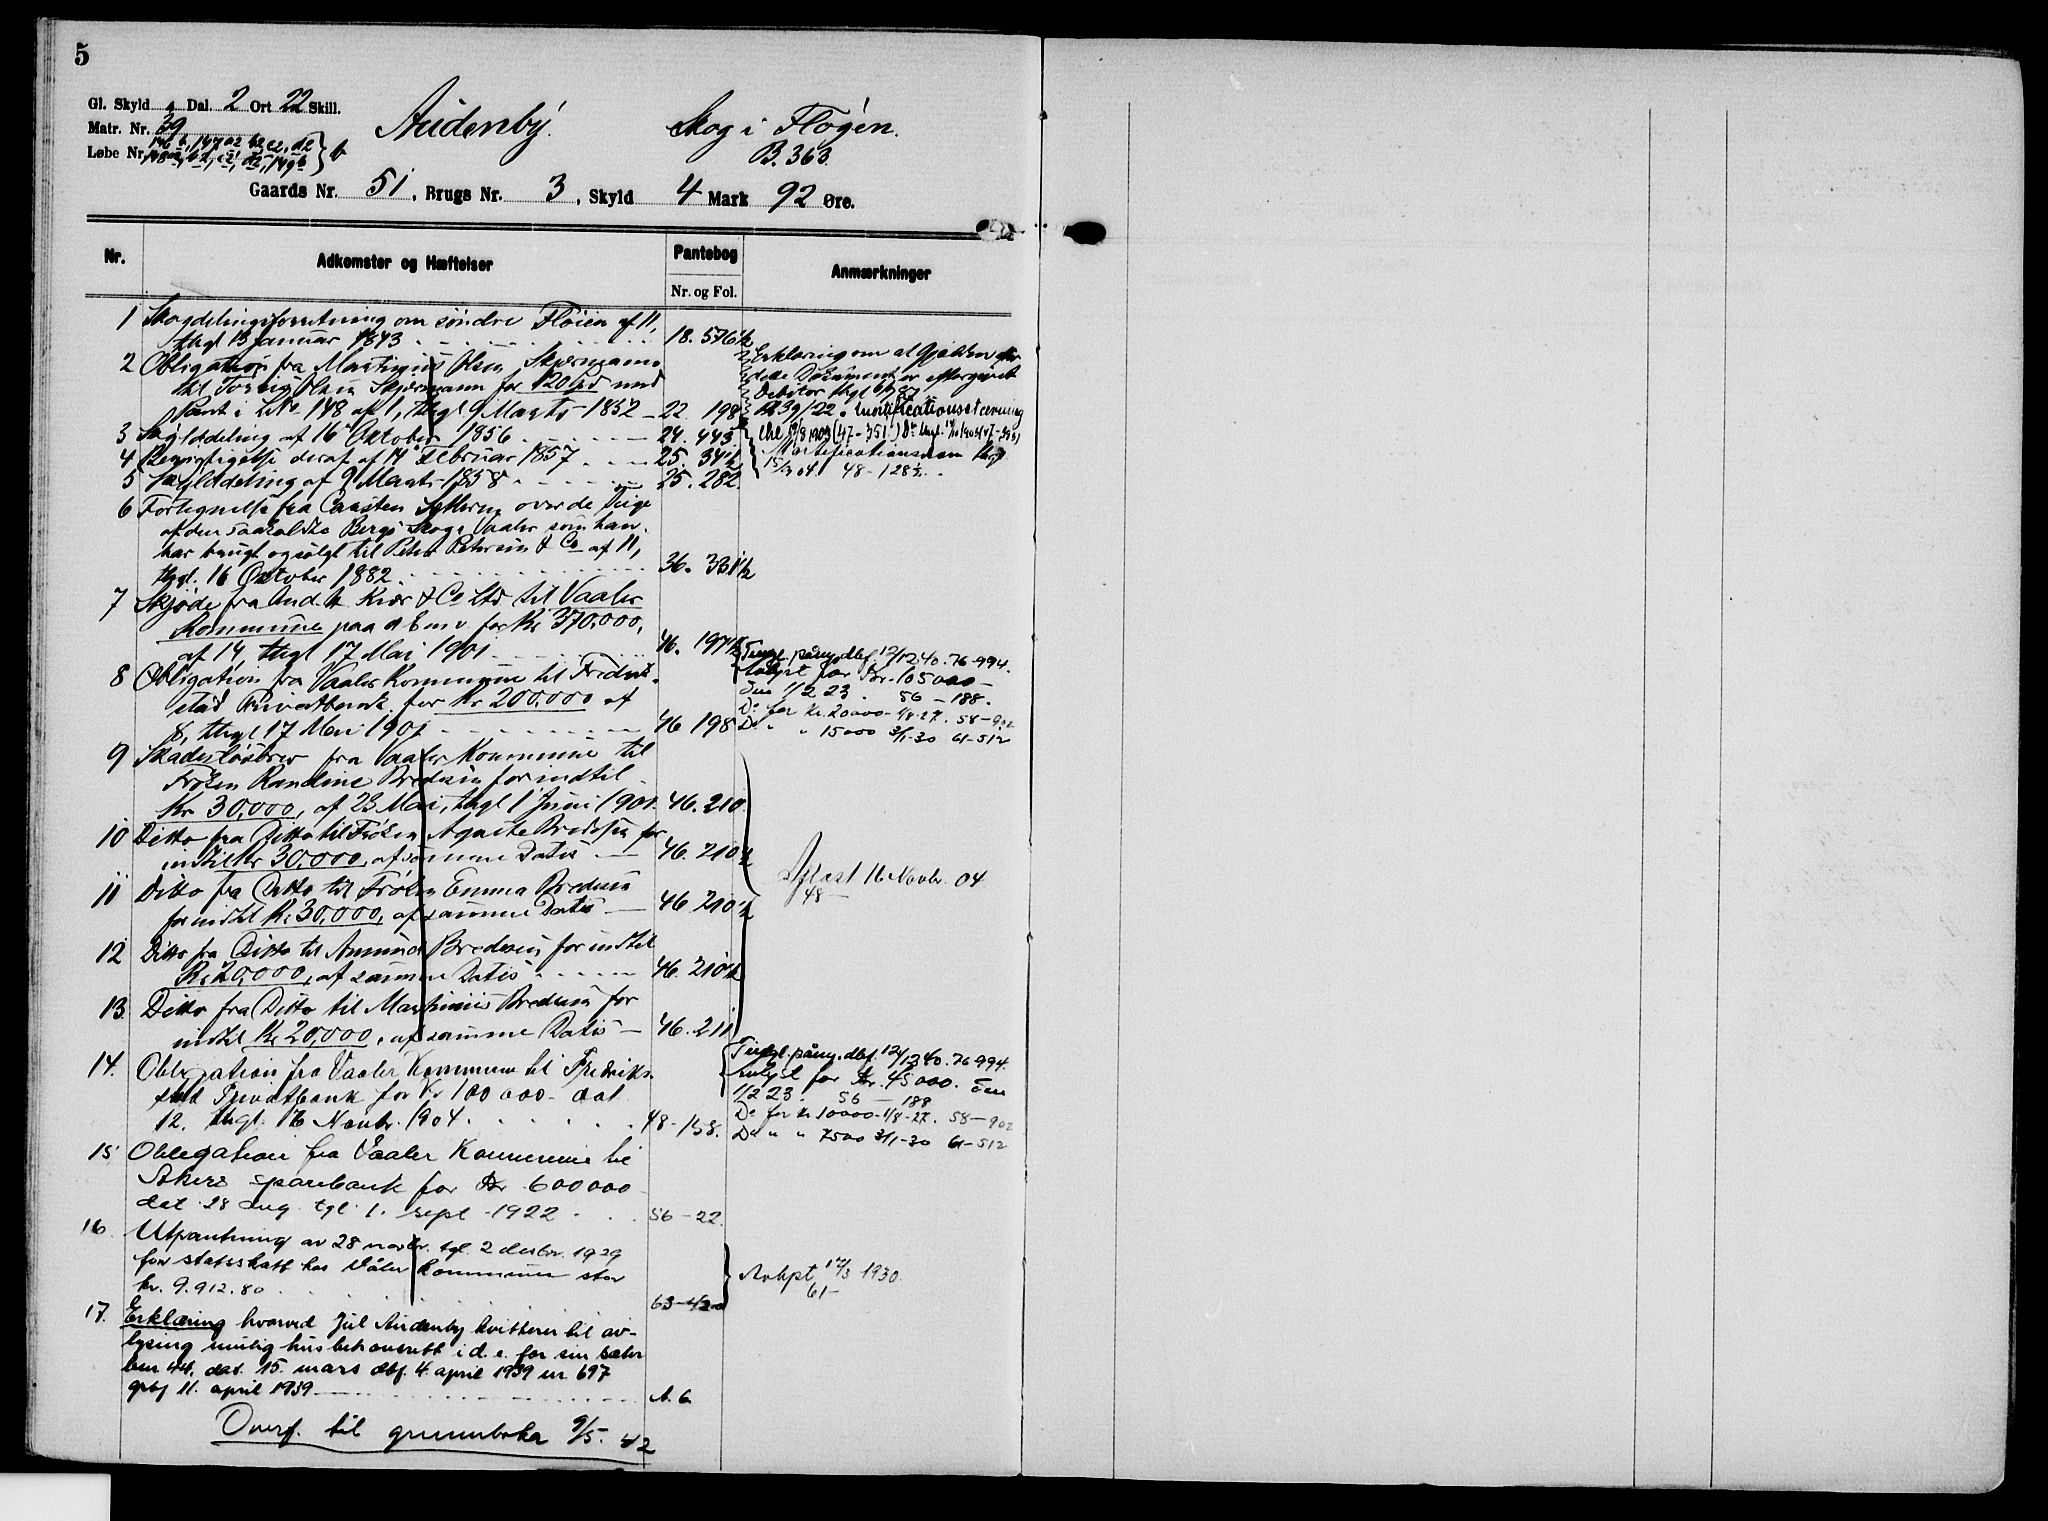 5
Gl. Skyld Dal. 2 Ort 22 Skill.
Matr. Nr. 39
Løbe Nr. 146 b, 147 a2 b2, c2, d2
148 a2, b2, c2, d2, 149 b
Audenby. Skog i Flogen.
B. 363.
Gaards Nr. 51, Brugs Nr. 3, Skyld 4 Mark 92 Øre.
Nr. Adkomster og Hæftelser Pantebog Anmærkninger
Nr. og Fol.
1 Skogdelingsforretning om søndre Fløien af 11,
thgl 13 Januar 1843 18. 576 1/2
2 Obligation fra Martinius Olsen Skjærmann
til Olsen Skjærmann for 120 Spd med
Pant i L.No 148 af 1, thgl 9 Marts 1852 22. 198
Erklæring om at Gjælden efter
dette Dokument er eftergivet
Debitor thgl
39/22. Mortificationsstevning
3 Skylddeling af 16 Oktober 1856 24. 443
(47-351)
4 Berigtigelse deraf af 14 Februar 1857 25. 34 1/2
Mortificationsdom thgl
5 Skylddeling af 9 Marts 1858 25. 282.
15/3 04 48-128 1/2
6 Fortegnelse fra Carsten over de Teige
af den saakaldte Bergs Skog i Vaaler som han
har brugt og solgt til Peter Petersen & Co af 11,
thgl. 16 Oktober 1882 36. 331 1/2
7 Skjøde fra And. H. Kiær & Co Ltd til Vaaler
Kommune paa d E m v for Kr 370,000,
af 14 thgl 17 Mai 1901 46. 197 1/2
Tingl. påny, dbf. 12/12 40. 76-994.
8 Obligation fra Vaaler Kommune til Fredrik-
Avlyst for Kr. 105000-
stad Privatbank for Kr 200,000 af
den 1/2 23. 56-188.
Do for Kr. 20000- 1/8-27. 58-902
8, thgl 17 Mai 1901 46 198
Do " " 15000 3/1-30 61-512
9 Skadesløsbrev fra Vaaler Kommune til
Frøken Randine Bredesen for indtil
Kr 30,000, af 23 Mai, thgl 1 Juni 1901. 46. 210.
10 Ditto fra Ditto til Frøken Agnete Bredesen for
indtil Kr 30,000, af samme Datis 46. 210 1/2
11 Ditto fra Ditto til Frøken Emma Bredesen
for indtil Kr 30,000, af samme Datis 46 210 1/2
Aflæst 16 Novbr. 04
48-
12 Ditto fra Ditto til Amund Bredesen for indtil
Kr 20,000, af samme Datis 46. 210 1/2
13. Ditto fra Ditto til Marthinius Bredesen for
indtil Kr 20,000, af samme Datis 46. 211
14. Obligation fra Vaaler Kommune til Fredrik-
Tingl. påny, dbf. 12/12 40. 76-994.
stad Privatbank for Kr 100 000- dat
Avlyst for Kr. 45000. den
1/2 23. 56-188
12. thgl. 16 Novbr. 1904. 48-158.
Do for Kr 10000- 1/8-27. 58-902
Do " " 7500 3/1-30 61-512
15 Obligation fra Vaaler Kommune til
Sparebank for Kr 600000
dat 28 Aug. tgl 1. sept 1922 56-22.
16 Utpantning av 28 novbr. tgl. 2 desbr. 1929
for statsskatt hos Våler Kommune stor
kr. 9.912.80 63-420
Avlyst 12/3 1930.
61-
17. Erklæring hvorved Jul Audenby kvitterer til av-
lysing mulig husbehovsrett i d. e. for sin sæter
bnr 44. dat. 15. mars dbf. 4. april 1939 nr 697
gbf 11. april 1939 A. 6
Overf. til grunnboka 9/5. 42